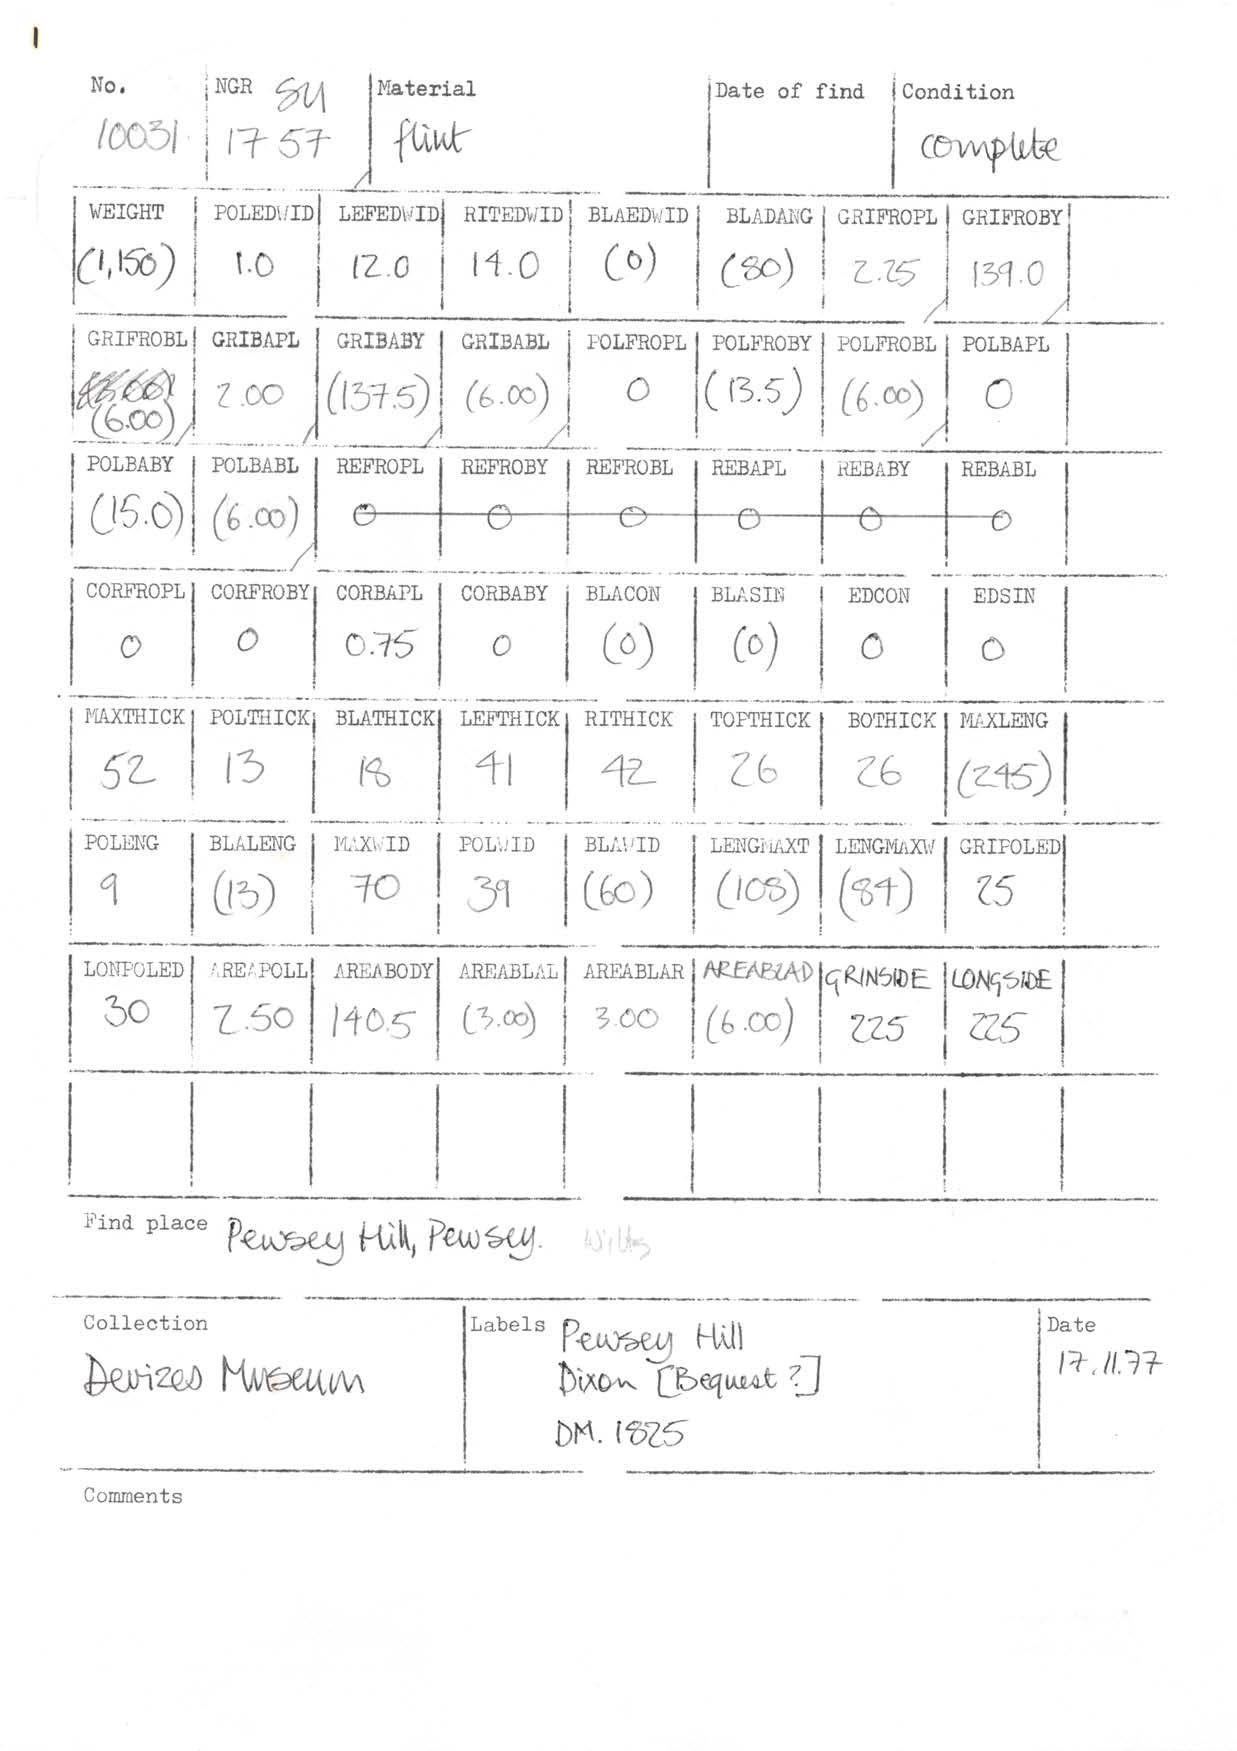 No. NGR SU Material Date of find Condition
10031 17 57 flint complete
WEIGHT POLEDWID LEFEDWID RITEDWID BLAEDWID BLADANG GRIFROPL GRIFROBY
(1,150) 1.0 12.0 14.0 (0) (80) 2.25 139.0
GRIFROBL GRIBAPL GRIBABY GRIBABL POLFROPL POLFROBY POLFROBL POLBAPL
(6.00) 2.00 (137.5) (6.00) 0 (13.5) (6.00) 0
POLBABY POLBABL REFROPL REFROBY REFROBL REBAPL REBABY REBABL
(15.0) (6.00) 0 0 0 0 0 0
CORFROPL CORFROBY CORBAPL CORBABY BLACON BLASIN EDCON EDSIN
0 0 0.75 0 (0) (0) 0 0
MAXTHICK POLTHICK BLATHICK LEFTHICK RITHICK TOPTHICK BOTHICK MAXLENG
52 13 18 41 42 26 26 (245)
POLENG BLALENG MAXWID POLWID BLAWID LENGMAXT LENGMAXW GRIPOLED
9 (13) 70 39 (60) (108) (84) 25
LONPOLED AREAPOLL AREABODY AREABLAL AREABLAR AREABLAD GRINSIDE LONGSIDE
30 2.50 140.5 (3.00) 3.00 (6.00) 225 225
Find place Pewsey Hill, Pewsey. Wilts
Collection Labels Pewsey Hill Date
Devizes Museum Dixon [Bequest?] 17.11.77
DM. 1825
Comments